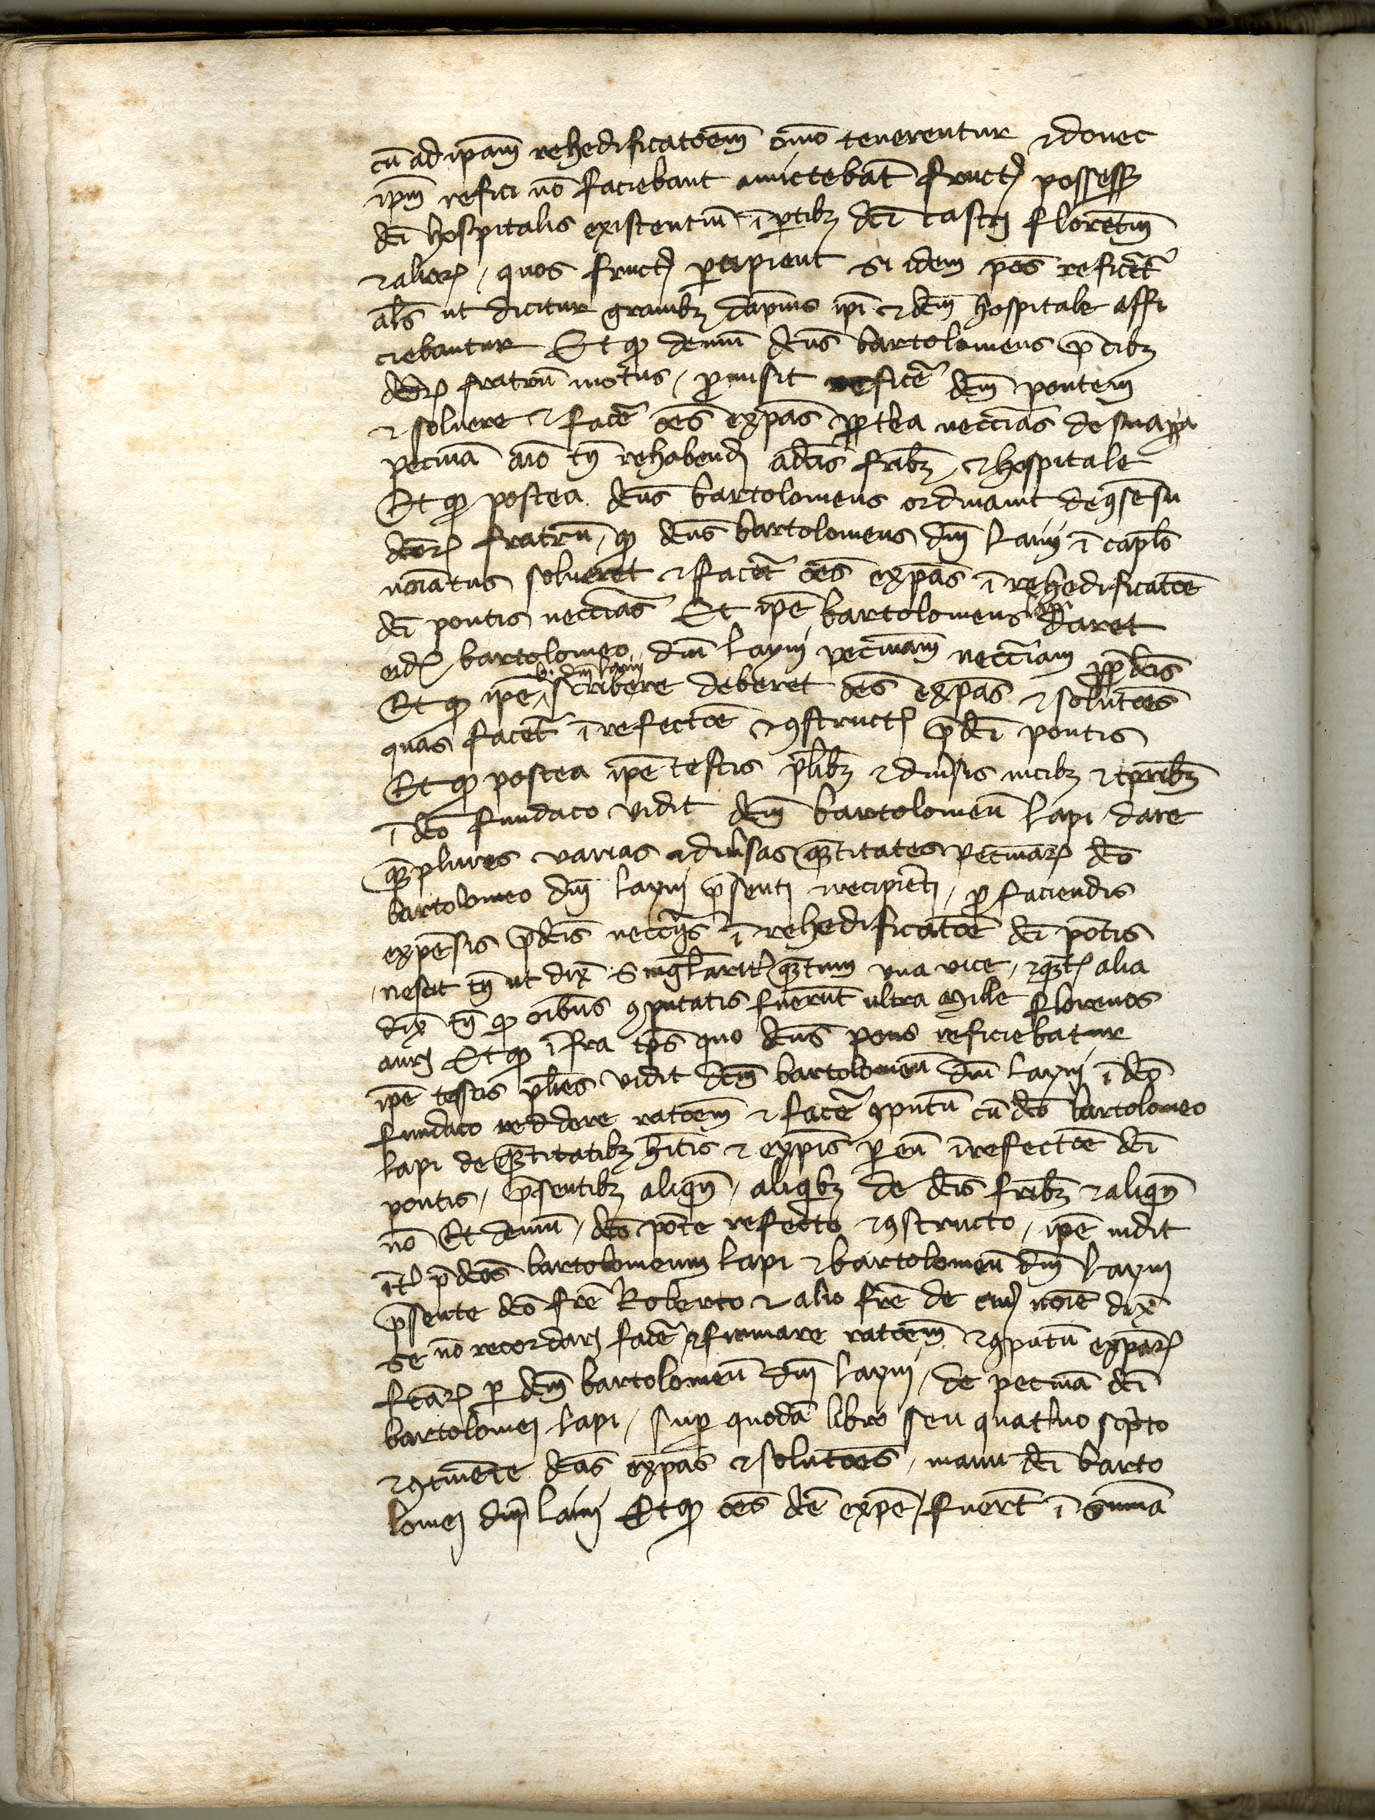 cū ad ip̄am rehedificatōem om̄o tenerentur et donec
ip̄m refici nō faciebant amictebāt fructꝰ possessꝫ
dc̄i hospitalis existentiū ī ꝑtibꝫ dc̄i castri florētin̄
et alioꝝ, quos fructꝰ ꝑcipient si idem pōs reficēt᷑
al̄s ut dicitur grauibꝫ dāpnis ip̄i et dc̄m hospitale affi
ciebantur Et qꝫ demū dc̄us bartolomeus p̄cibꝫ
dc̄oꝝ fratrū motus, ꝓmisit reficē dc̄m pontem
et soluere et facē oēs exp̄as ꝓpt̄ea neccīas de sua ꝓp̄a
pecunia aīo tn̄ rehabendi a dc̄is fr̄ibꝫ et hospitale
Et qꝫ postea dc̄us bartolomeus ordinauit de ꝯsēsu
dc̄oꝝ fratrū, qꝫ dc̄us bartolomeus dn̄i Lapi ī capl̄o
noīatus solueret et facēt oēs exp̄as ī rehedificatōe
dc̄i pontis neccīas Et ip̄e bartolomeus lapi daret
eidē bartolomeo dn̄i layni pecuniam neccīam ꝓ p̄dc̄is
Et qꝫ ip̄e b. dn̄i layni scribere deberet oēs exp̄as et solutōes
quas facēt ī refectōe et ꝯstructōe p̄dc̄i pontis
Et qꝫ postea ip̄e testis pl̄ibꝫ et diuisis uicibꝫ et tp̄ribꝫ
ī dc̄o fundaco vidit dc̄m bartolomeū lapi dare
qꝫplures varias et diu̓sas qꝫtitates pecuniaꝝ dc̄o
bartolomeo dn̄i layni p̄senti et recipiēti, ꝓ faciendis
expēsis p̄dc̄is neccīis ī rehedificatōe dc̄i pōtis
nescit tn̄ ut dix̄ singl̄arit̓ qꝫtum vna vice, et qꝫtū alia
dix̄ tn̄ qꝫ oībus ꝯputatis fuerūt ultra mille florenos
auri Et qꝫ īfra tp̄s quo dc̄us pons reficiebatur
ip̄e testis pl̄ies vidit dc̄m bartolomeū dn̄i layni ī dc̄o
fundaco reddere ratōem et facē ꝯputū cū dc̄o bartolomeo
lapi de qꝫtitatibꝫ hītis et exp̄is ꝑ eū ī refectōe dc̄i
pontis, p̄sentibꝫ aliqn̄, aliqibꝫ de dc̄is fr̄ibꝫ et aliqn̄
nō Et demū, dc̄o pōte refecto et ꝯstructo, ip̄e uidit
p̄dc̄os bartolomeum lapi et bartolomeū dn̄i layni
p̄sente dc̄o fr̄e Roberto et alio fr̄e de cuiꝰ noīe dix̄
se nō recordari facē et firmare ratōem et ꝯputū exp̄aꝝ
fc̄aꝝ ꝑ dc̄m bartolomeū dn̄i layni, de pecunia dc̄i
bartolomei lapi, suꝑ quodā libro seu quat̓no sc̄pto
et ꝯtinēte dc̄as exp̄as et solutōes, manu dc̄i barto
lomei dn̄i laini Et qꝫ oēs dc̄e exp̄e, fuerūt ī sum̄a